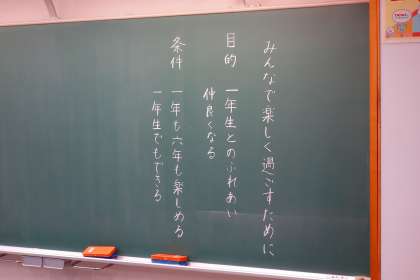 みんなで楽しく過ごすために
目的 一年生とのふれあい
仲良くなる
条件 一年も六年も楽しめる
一年生でもできる